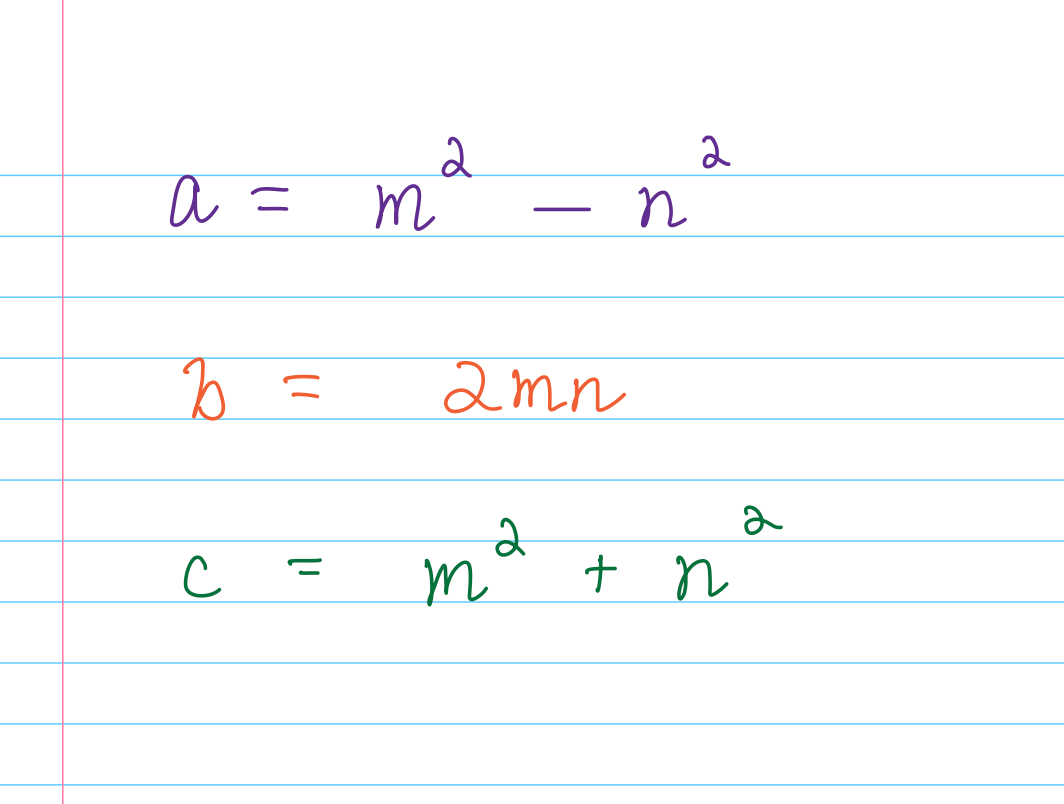 a = m² − n²
b = 2mn
c = m² + n²